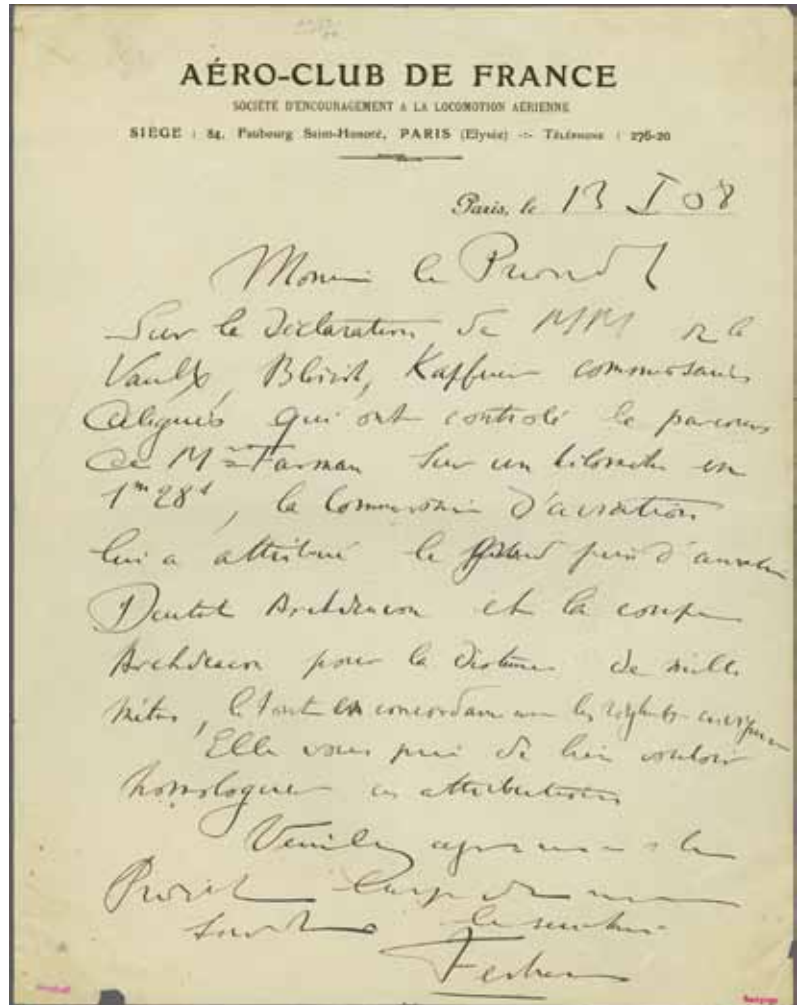 AÉRO-CLUB DE FRANCE
SOCIÉTÉ D'ENCOURAGEMENT A LA LOCOMOTION AÉRIENNE
SIÈGE : 84, Faubourg Saint-Honoré, PARIS (Elysée) -:- TÉLÉPHONE : 276-20
Paris, le 13 I 08
Monsieur le Président
Sur la déclaration de MM de la
Vaulx, Blériot, Kapferer commissaires
délégués qui ont contrôlé le parcours
de Mr Farman sur un kilomètre en
1m 28s, la Commission d'aviation
lui a attribué le grand prix d'aviation
Deutsch Archdeacon et la coupe
Archdeacon pour la distance de mille
mètres, le tout en concordance avec les règlements
Elle vous prie de bien vouloir
homologuer ces attributions
Veuillez agréer
Président
le secrétaire
Ferber